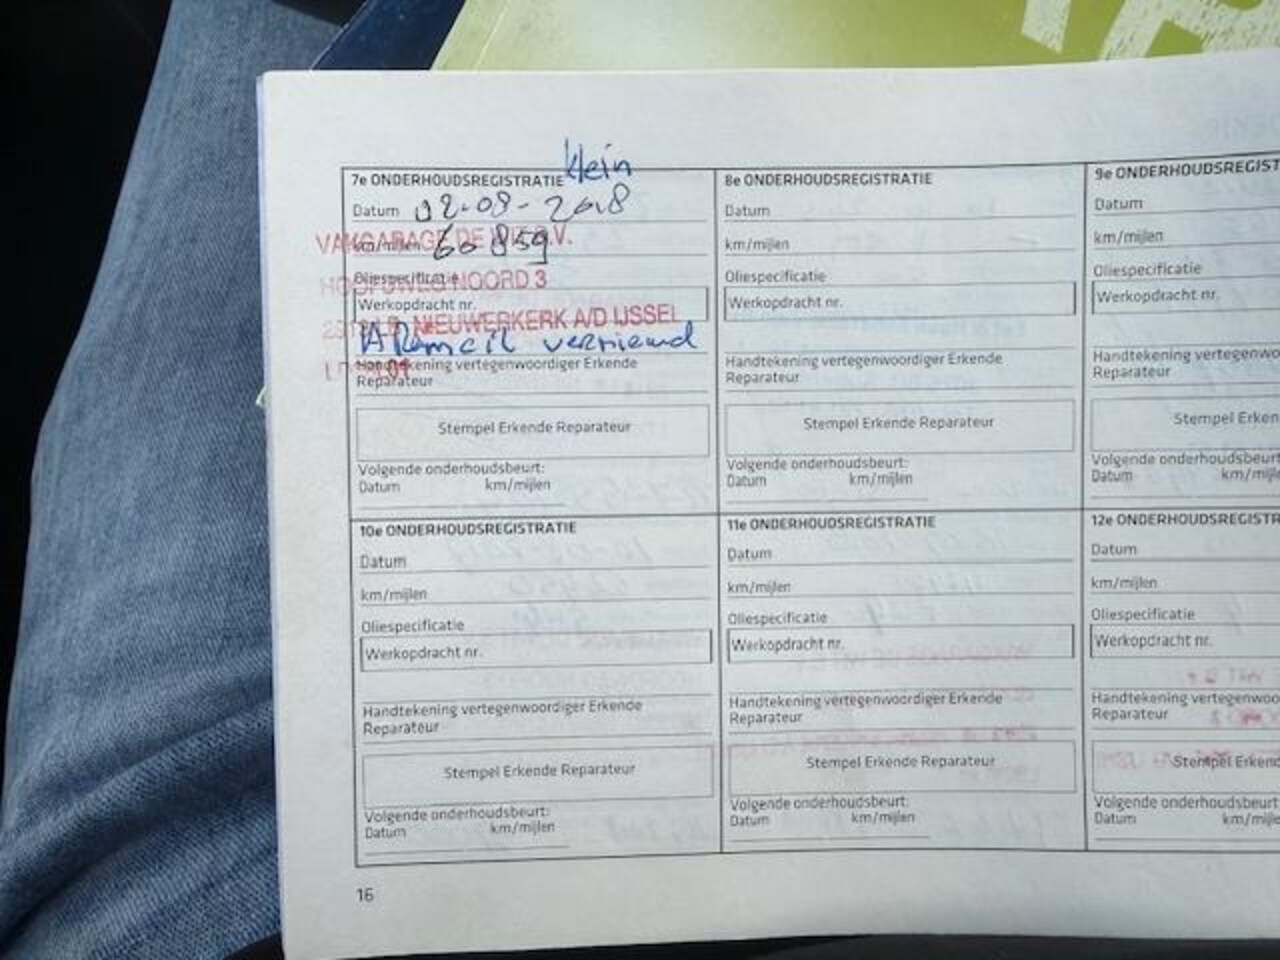 klein
7e ONDERHOUDSREGISTRATIE
Datum 02-08-2018
km/mijlen 60859
VAKGARAGE DE WIT B.V.
Oliespecificatie
HOOFDWEG NOORD 3
Werkopdracht nr.
NIEUWERKERK A/D IJSSEL
vernieuwd
Handtekening vertegenwoordiger Erkende
Reparateur
Stempel Erkende Reparateur
Volgende onderhoudsbeurt:
Datum km/mijlen
8e ONDERHOUDSREGISTRATIE
Datum
km/mijlen
Oliespecificatie
Werkopdracht nr.
Handtekening vertegenwoordiger Erkende
Reparateur
Stempel Erkende Reparateur
Volgende onderhoudsbeurt:
Datum km/mijlen
9e ONDERHOUDSREGIST
Datum
km/mijlen
Oliespecificatie
Werkopdracht nr.
Handtekening vertegenwo
Reparateur
Stempel Erken
Volgende onderhoudsbeurt
Datum km/mijle
10e ONDERHOUDSREGISTRATIE
Datum
km/mijlen
Oliespecificatie
Werkopdracht nr.
Handtekening vertegenwoordiger Erkende
Reparateur
Stempel Erkende Reparateur
Volgende onderhoudsbeurt:
Datum km/mijlen
11e ONDERHOUDSREGISTRATIE
Datum
km/mijlen
Oliespecificatie
Werkopdracht nr.
Handtekening vertegenwoordiger Erkende
Reparateur
Stempel Erkende Reparateur
Volgende onderhoudsbeurt:
Datum km/mijlen
12e ONDERHOUDSREGISTR
Datum
km/mijlen
Oliespecificatie
Werkopdracht nr.
Handtekening vertegenwo
Reparateur
Stempel Erkend
Volgende onderhoudsbeurt
Datum km/mijle
16